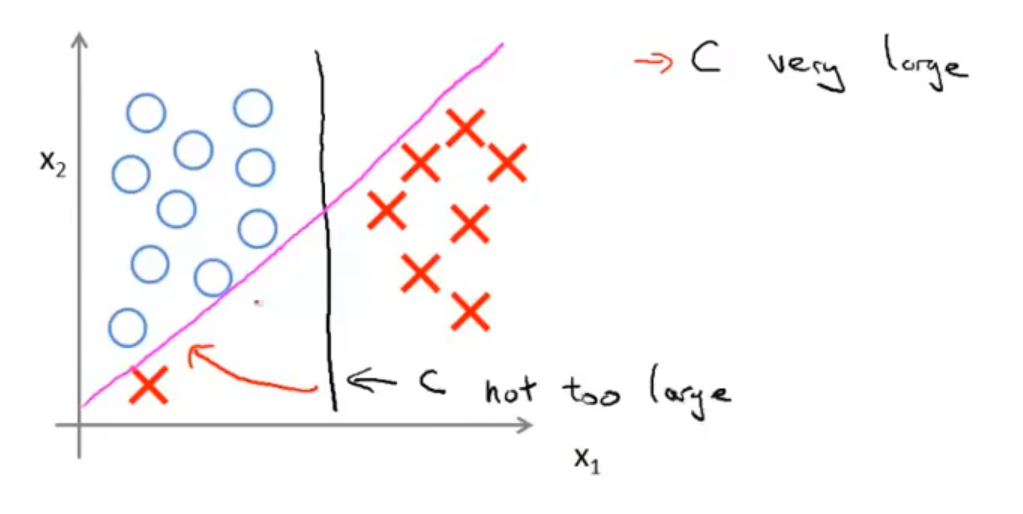 → C very large
x₂
← C not too large
x₁